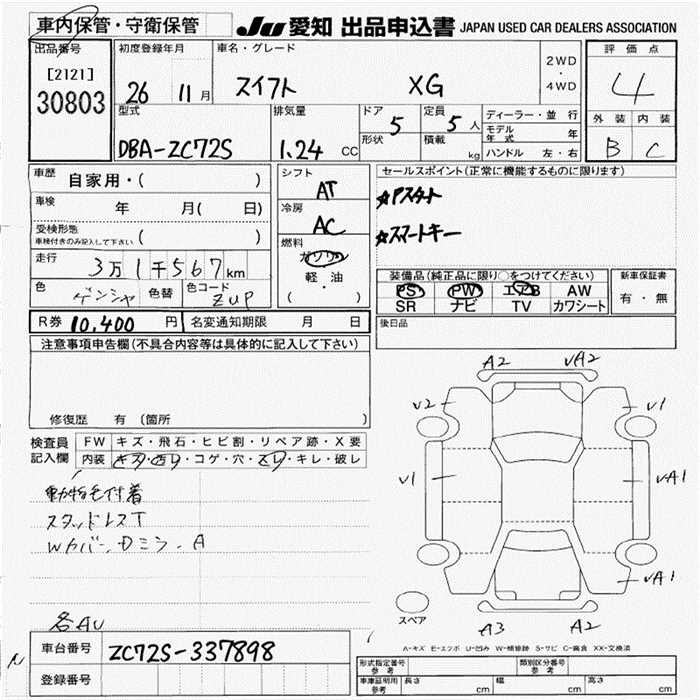 車内保管・守衛保管
JU 愛知 出品申込書 JAPAN USED CAR DEALERS ASSOCIATION
出品番号
[2121]
30803
初度登録年月
26 11月
車名・グレード
スイフト XG
2WD
・
4WD
評価点
4
外装 内装
B C
型式
DBA-ZC72S
排気量
1.24 CC
ドア
5
形状
定員
5人
積載
kg
ディーラー・並行
モデル年式 年
ハンドル 左・右
車歴
自家用・( )
車検
年 月( 日)
受検形態
車検付きのみ記入して下さい ( )
走行
3万1千567km
色
ゲンシャ
色替
色コード
ZUP
シフト
AT
冷房
AC
燃料
ガソリン
軽・油
( )
セールスポイント(正常に機能するものに限ります)
☆Pスタート
☆スマートキー
装備品(純正品に限り○をつけてください)
PS PW エアB AW
SR ナビ TV カワシート
新車保証書
有・無
R券 10,400 円 名変通知期限 月 日
後日品
注意事項申告欄(不具合内容等は具体的に記入して下さい)
修復歴 有 (箇所 )
検査員記入欄
FW キズ・飛石・ヒビ割・リペア跡・X要
内装 キズ・汚レ・コゲ・穴・スレ・キレ・破レ
動物毛付着
スタッドレスT
Wカバー、Dミラー、A
各AU
A2 √A2
√2 √1
√1 √A1
√A1
A3 A2
スペア
A-キズ E-エクボ U-凹み W-補修跡 S-サビ C-腐食 XX-交換済
車台番号
ZC72S-337898
登録番号
形式指定番号
参考
類別区分番号
参考
車庫証明用
参考
長さ cm 幅 cm 高さ cm